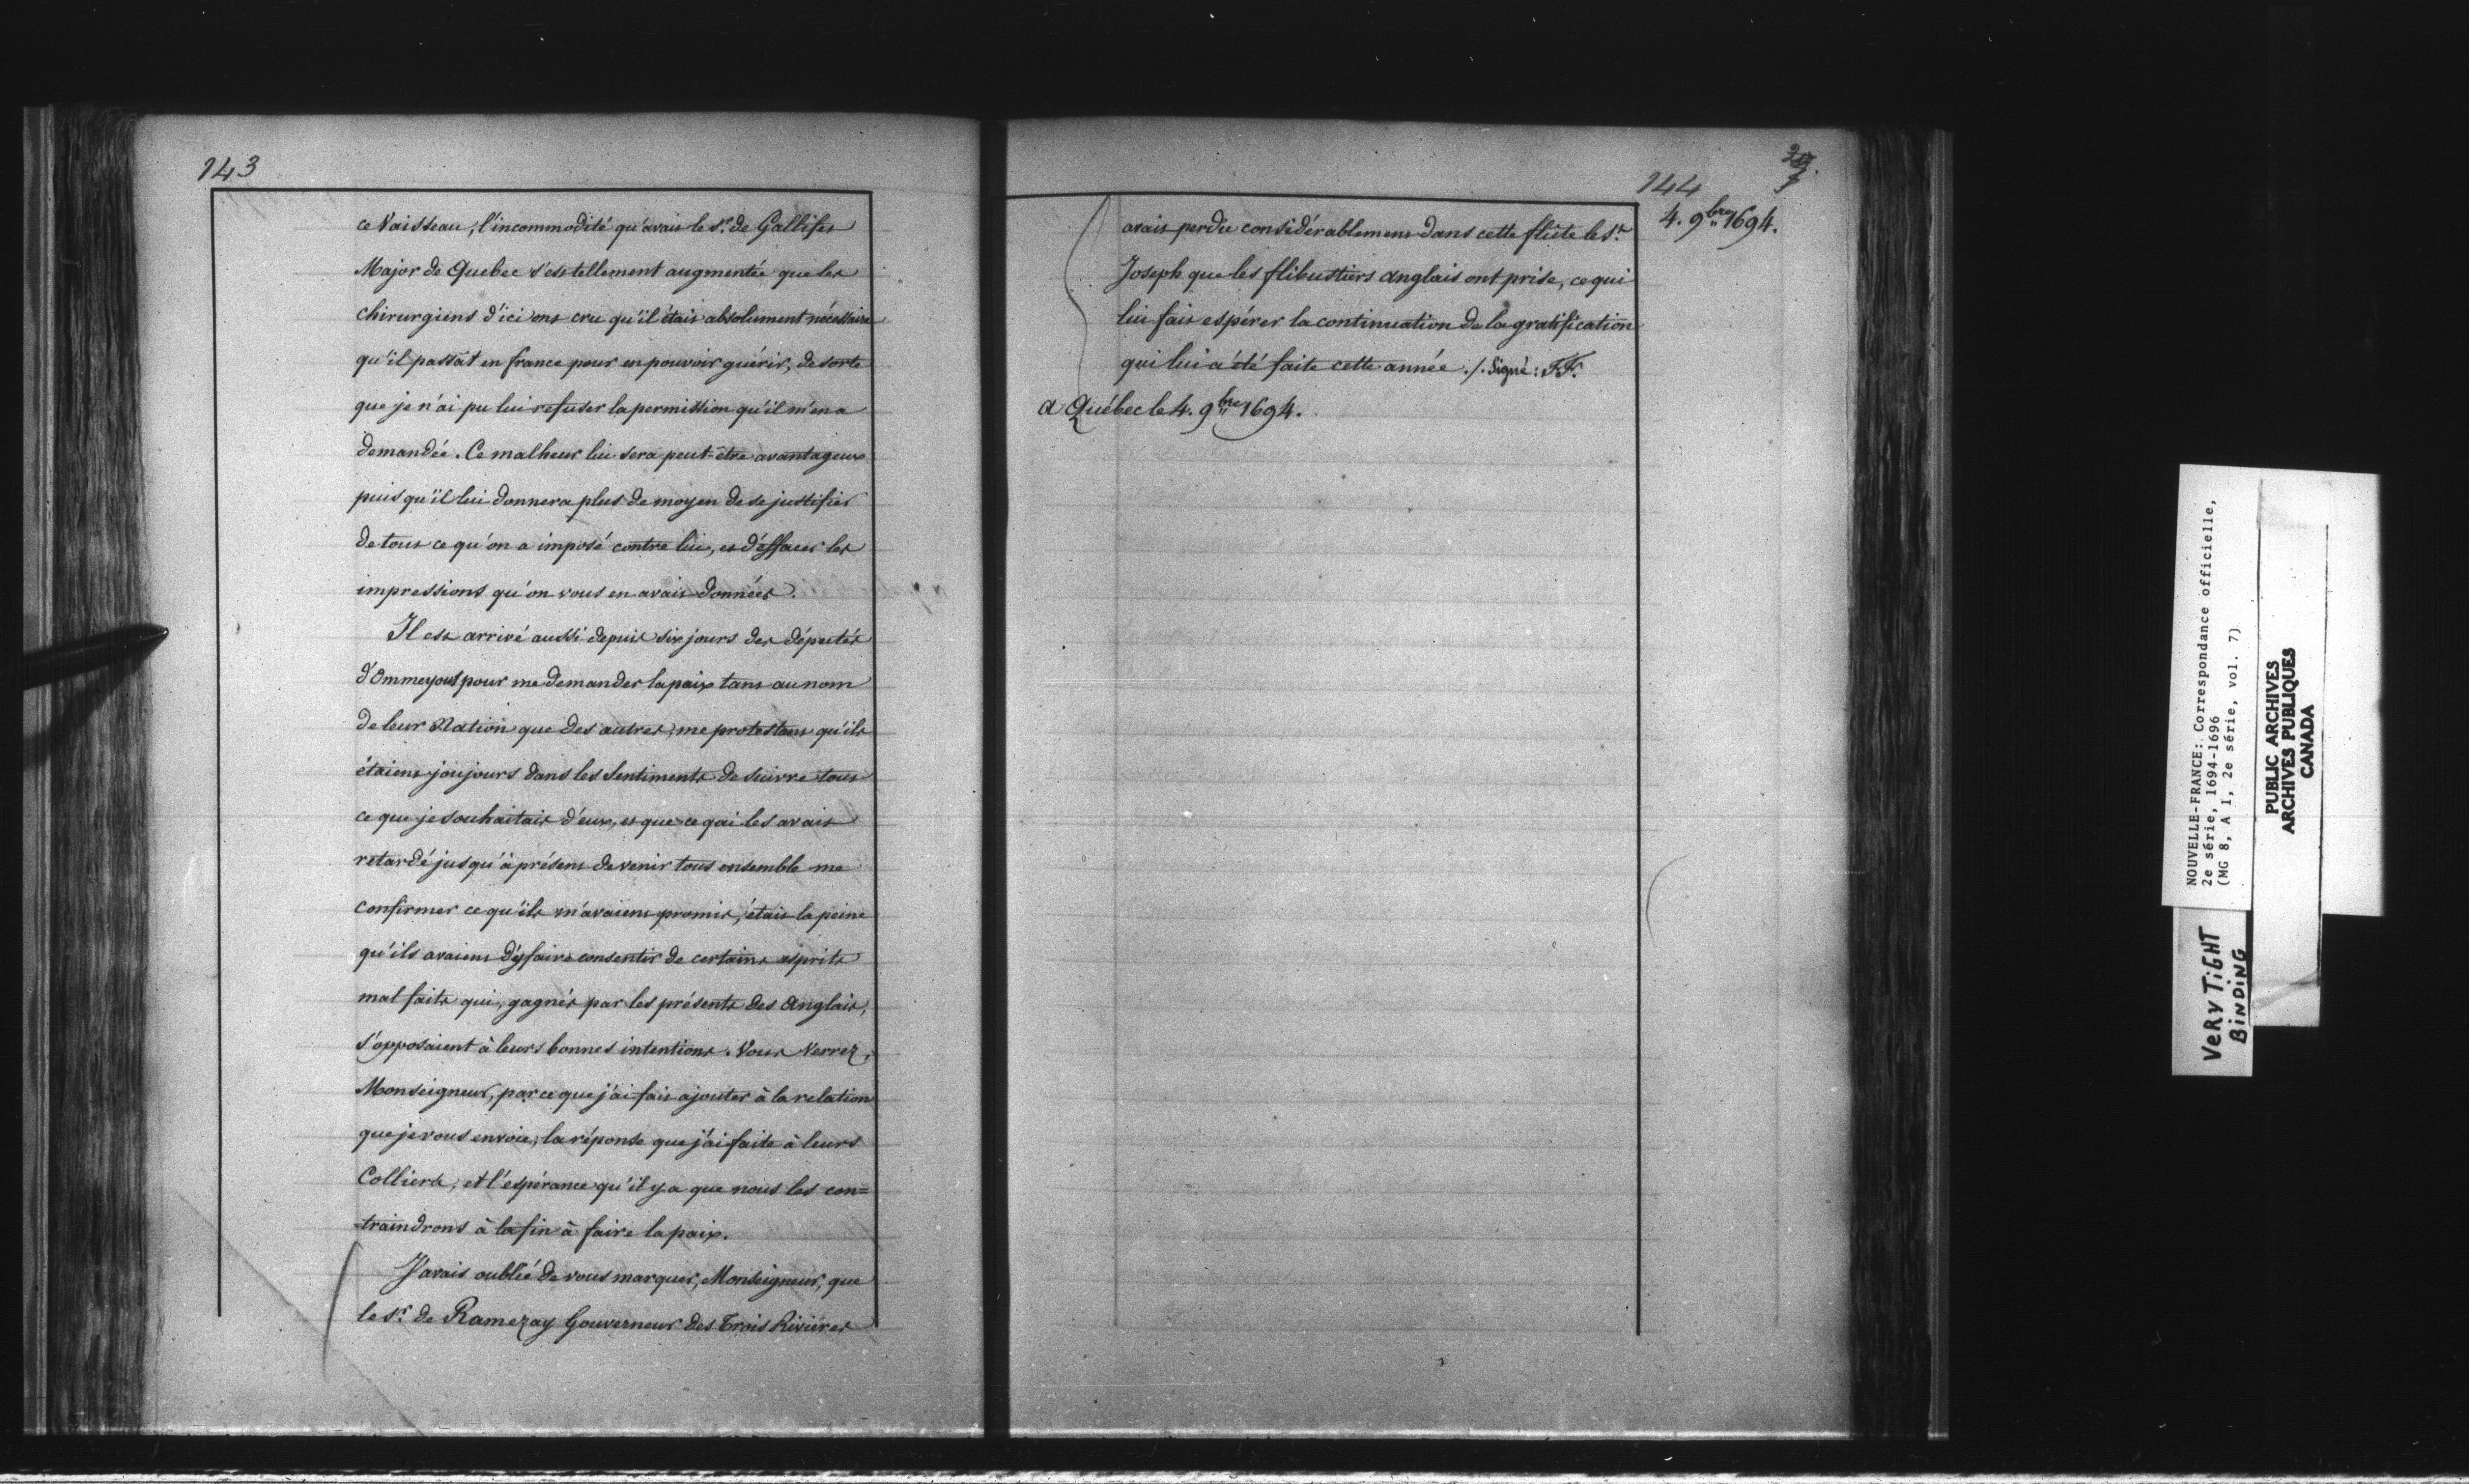 143
ce Vaisseau, l'incommodité qu'avait le Sr. de Gallifet
Major de Quebec s'est tellement augmentée que les
chirurgiens d'ici ont cru qu'il était absolument nécessaire
qu'il passât en france pour en pouvoir guérir, de sorte
que je n'ai pu lui refuser la permission qu'il m'en a
demandée. Ce malheur lui sera peut-être avantageux
puisqu'il lui donnera plus de moyen de se justifier
de tout ce qu'on a imposé contre lui, et d'effacer les
impressions qu'on vous en avait données.
Il est arrivé aussi depuis six jours des députés
d'Ommeyout pour me demander la paix tant au nom
de leur Nation que des autres, me protestant qu'ils
étaient joujours dans les sentiments de suivre tout
ce que je souhaitais d'eux, et que ce qui les avait
retardé jusqu'à présent de venir tous ensemble me
confirmer ce qu'ils m'avaient promis, était la peine
qu'ils avaient d'y faire consentir de certains esprits
mal faits qui, gagnés par les présents des Anglais,
s'opposaient à leurs bonnes intentions. Vous verrez,
Monseigneur, par ce que j'ai fait ajouter à la relation
que je vous envoie, la réponse que j'ai faite à leurs
Colliers, et l'espérance qu'il y a que nous les con=
=traindrons à la fin à faire la paix.
J'avais oublié de vous marquer, Monseigneur, que
le Sr. de Ramezay Gouverneur des Trois Rivières
144
4. 9bre 1694.
avait perdu considérablement dans cette flûte le St.
Joseph que les flibustiers anglais ont prise, ce qui
lui fait espérer la continuation de la gratification
qui lui a été faite cette année ./. Signé: FF.
A Québec le 4. 9bre 1694.
NOUVELLE-FRANCE: Correspondance officielle,
2e série, 1694-1696
(MG 8, A I, 2e série, vol. 7)
PUBLIC ARCHIVES
ARCHIVES PUBLIQUES
CANADA
VERY TIGHT
BINDING